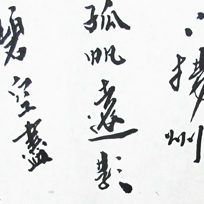 下揚州
孤帆遠影
碧空盡